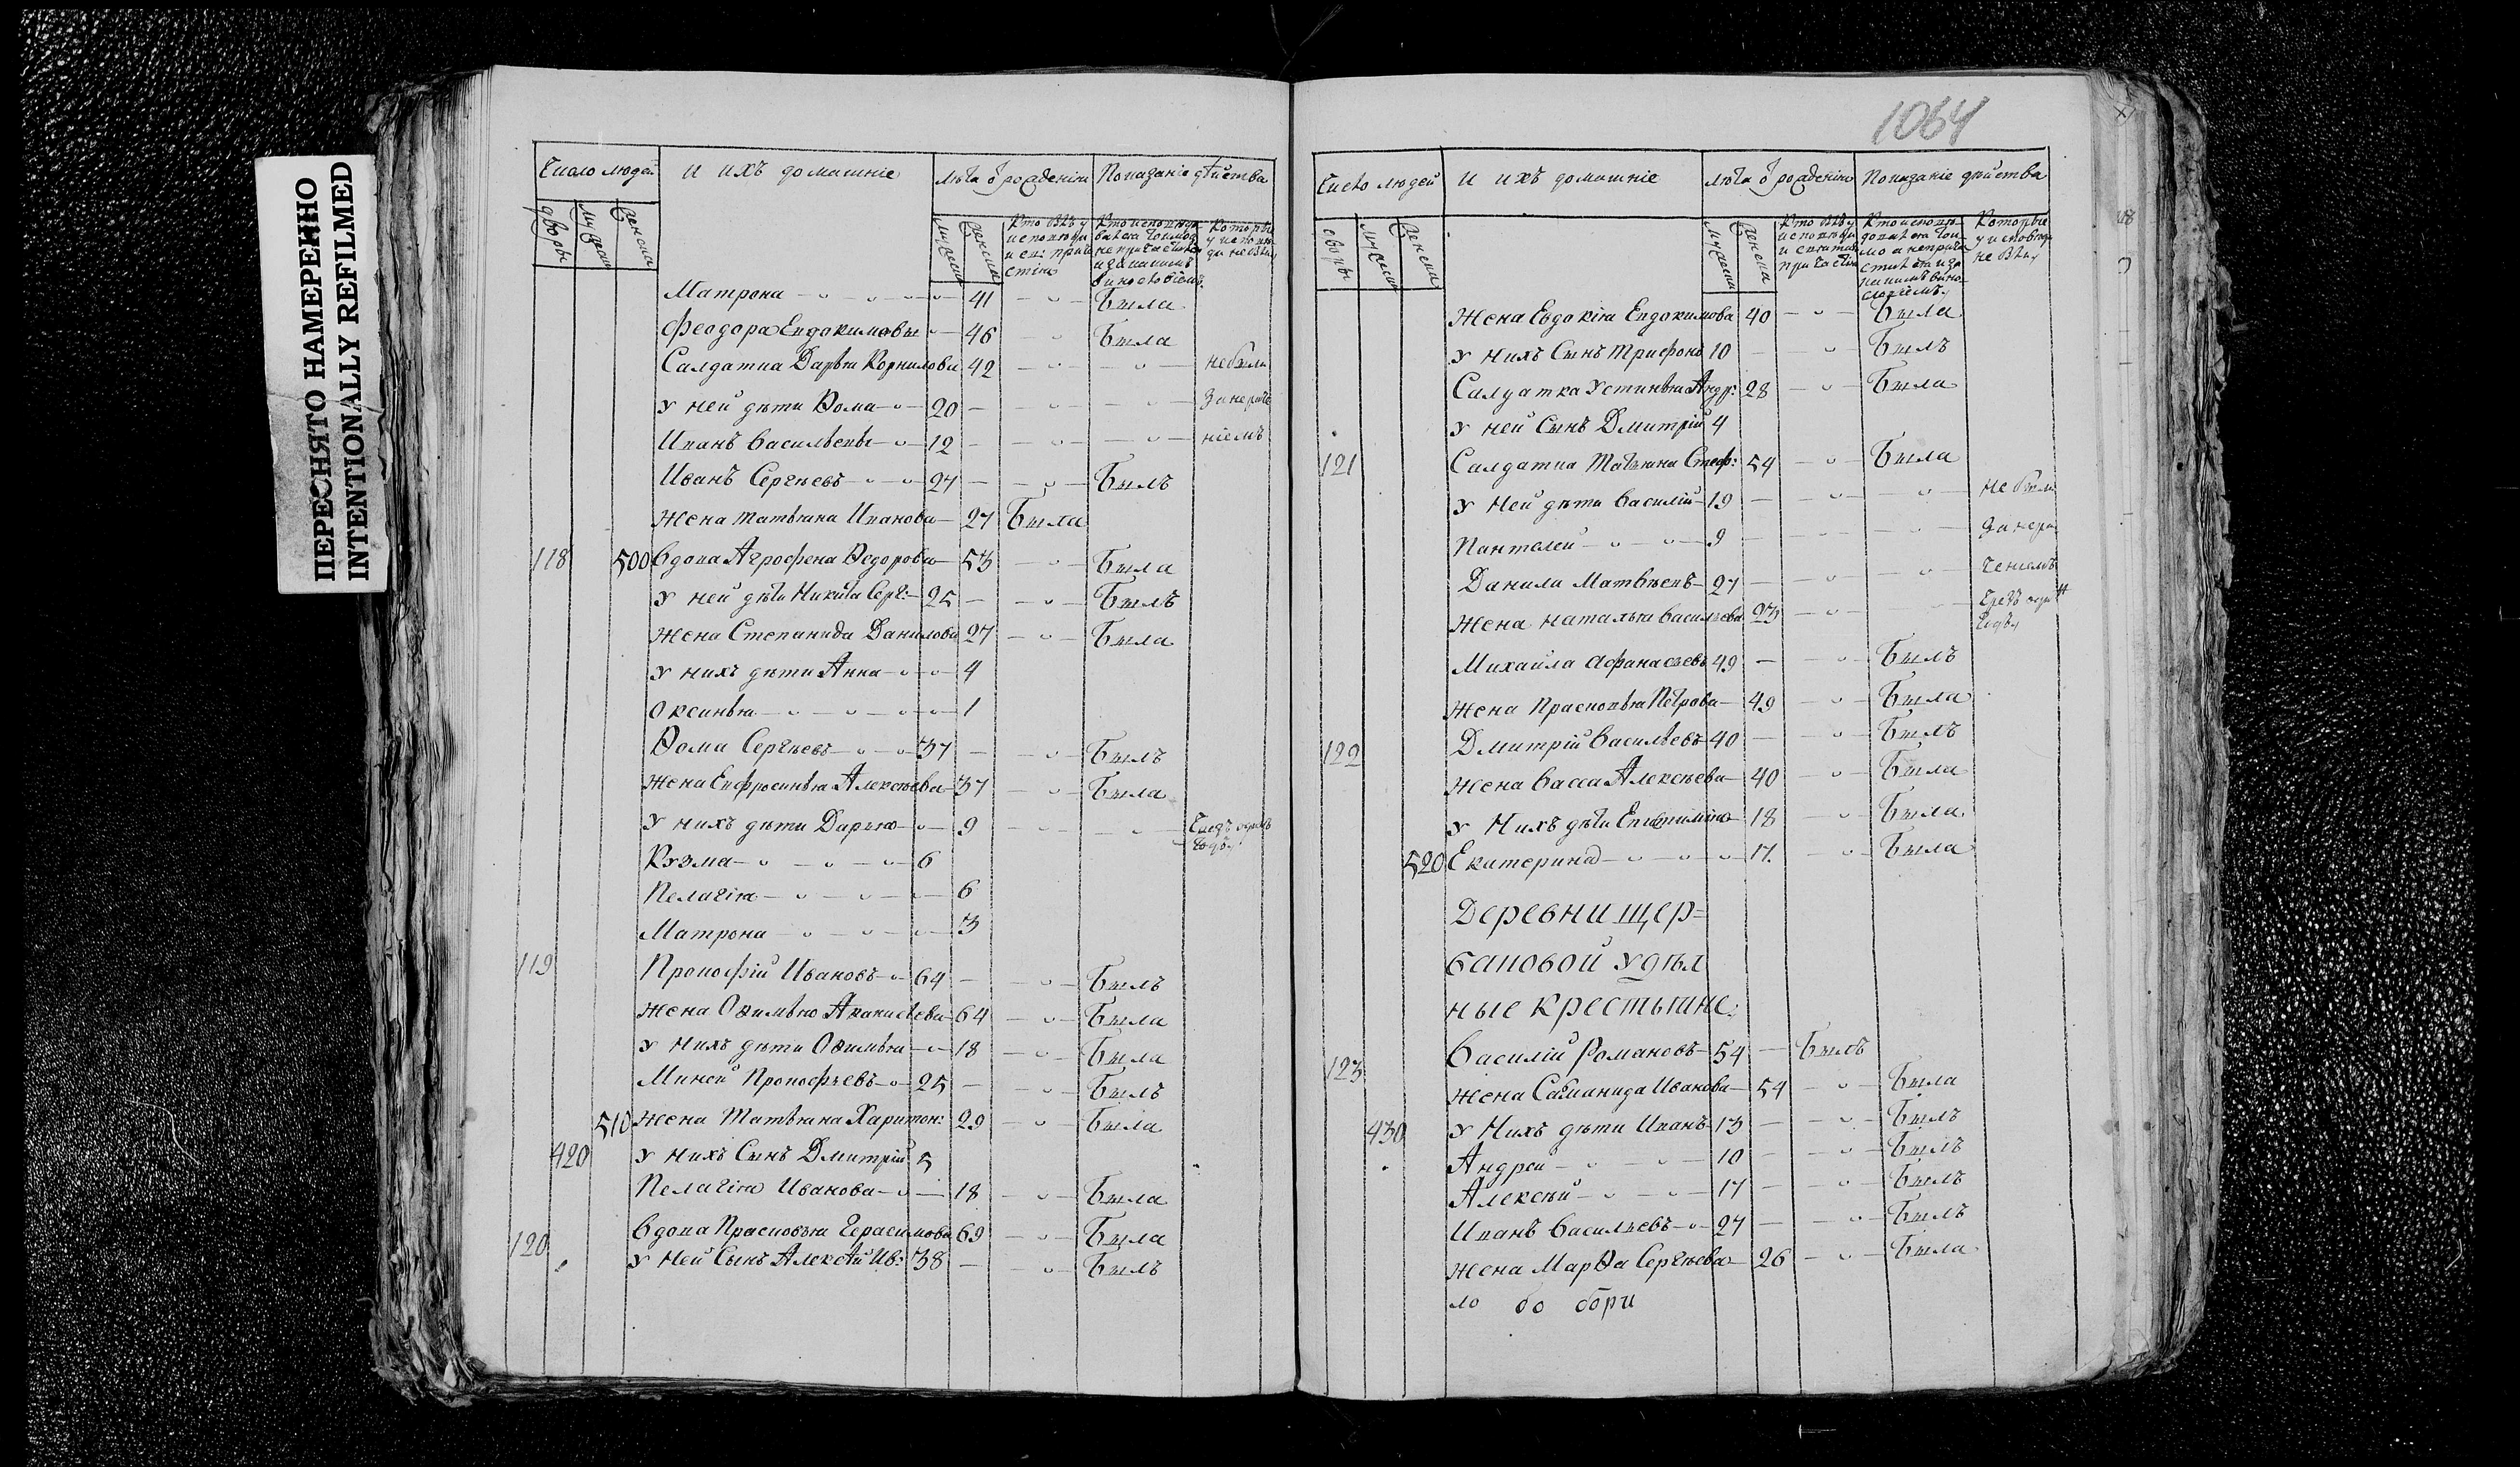 ПЕРЕСНЯТО НАМЕРЕННО
INTENTIONALLY REFILMED
Число людей и ихъ домашнiе лѣта ѿ рожденiя Показанiе дѣйства
дворы мужеска женска мужеска женска Кто былъ у исповѣди и св: причастiя Кто исповѣдывался токмо а не причастился и за какимъ винословiемъ Которые у исповѣди не были
Матрона 41 Была
Феодора Евдокимовы 46 Была
Салдатка Дарья Корнилова 42 не были
у ней дѣти Ѳома 20 за нераче
Иванъ Васильевы 12 нiемъ
Иванъ Сергѣевъ 27 Былъ
жена Татьяна Иванова 27 Была
118 500 вдова Агрофена Ѳедорова 53 Была
у ней дѣти Никита Серг: 25 Былъ
жена Степанида Данилова 27 Была
у нихъ дѣти Анна 4
Оксинья 1
Ѳома Сергѣевъ 37 Былъ
жена Евфросинья Алексѣева 37 Была
у нихъ дѣти Дарья 9
Кузма 6
Пелагiя 6
Матрона 3
119 Прокофiй Ивановъ 64 Былъ
жена Офимья 64 Была
у нихъ дѣти Офимья 18 Была
Минѣй Прокофьевъ 25 Былъ
510 жена Татьяна Харитон: 29 Была
420 у нихъ сынъ Дмитрiй 5
Пелагiя Иванова 18 Была
120 вдова Прасковья Герасимова 69 Была
у ней сынъ Алексѣй Ив: 38 Былъ
1064
Число людей и ихъ домашнiе лѣта ѿ рожденiя Показанiе дѣйства
дворы мужеска женска мужеска женска Кто былъ у исповѣди и святаго причастiя Кто исповѣдовался токмо а не причастился и за какимъ винословiемъ Которые у исповѣди не были
жена Евдокiя Евдокимова 40 Была
у нихъ сынъ Трифонъ 10 Былъ
Салдатка Устинья Андр: 28 Была
у ней сынъ Дмитрiй 4
121 Салдатка Татьяна Стеф: 54 Была
у ней дѣти Василiй 19 не были
Пантелей 9 за нера
Данила Матвѣевъ 27 ченiемъ
жена Наталья Васильева 23
Михайла Афанасьевъ 49 Былъ
жена Прасковья Петрова 49 Была
122 Дмитрiй Васильевъ 40 Былъ
жена Васса Алексѣева 40 Была
у нихъ дѣти 18 Была
520 Екатерина 17 Была
Деревни Щер-
баковой удѣл
ные крестьяне:
123 Василiй Романовъ 54 Былъ
жена Иванова 54 Была
430 у нихъ дѣти Иванъ 13 Былъ
Андрей 10 Былъ
Алексѣй 17 Былъ
Иванъ Васильевъ 27 Былъ
жена Марѳа Сергѣева 26 Была